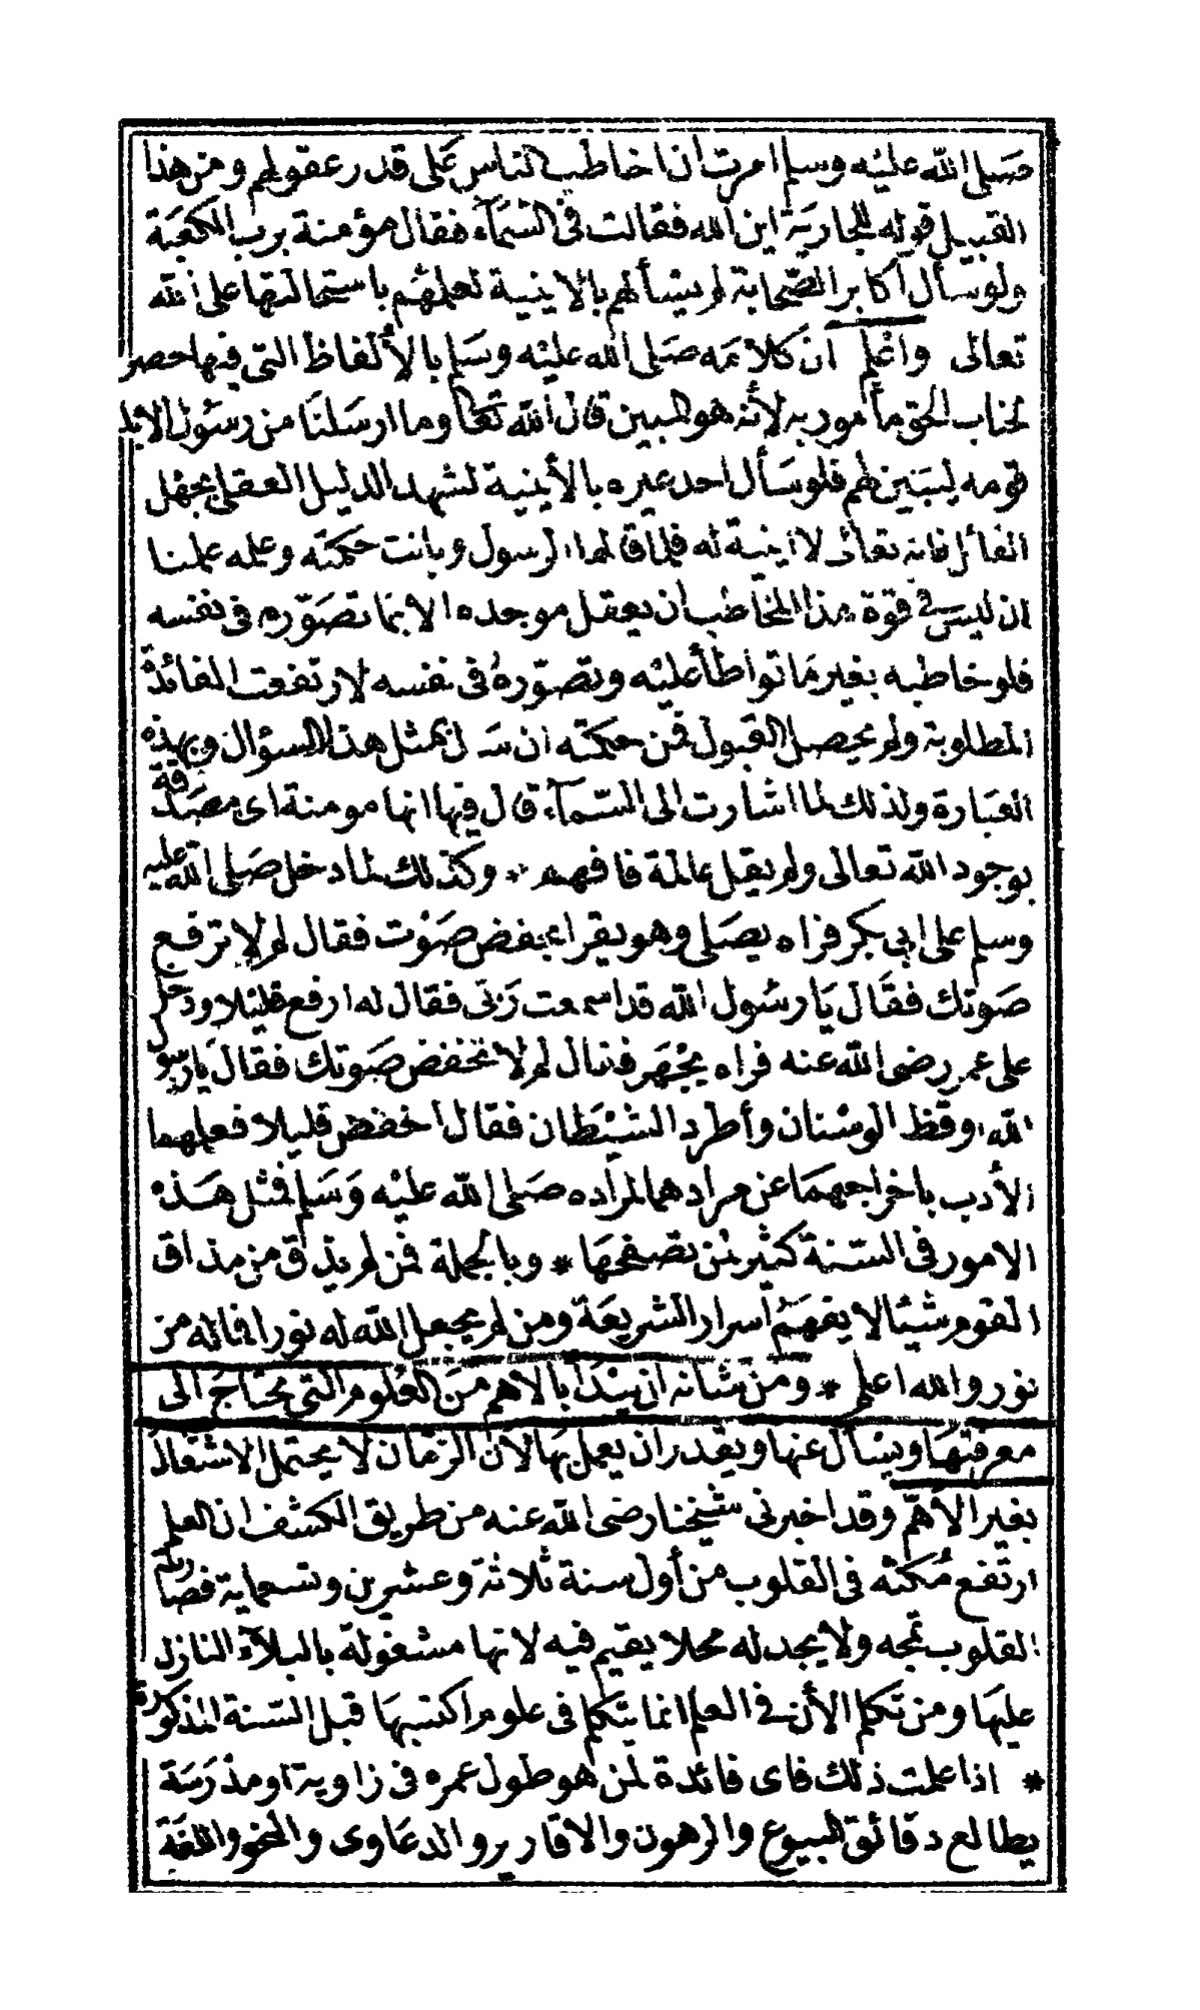 صَلى الله عليْه وسلم امرت ان اخاطب الناس عَلى قدر عقولهم ومن هذا
القبيل قوله للجارية اين الله فقالت فى السّمَآء فقال مؤمنة برب الكعبَة
ولو سأل أكابر الصّحابة لم يسألهم بالاينية لعلمهُم باستحالتها على الله
تعالى واعْلم ان كلامَه صَلى الله عليْه وسَلم بالألفاظ التى فيها حصر
لجناب الحق مأمور به لأنه هو المبين قال الله تعَالى وما ارسَلنَا من رسُول الا بلسان
قومه ليبَين لهم فلو سَأل احد غيره بالأينية لشهد الدليل العقلى بجهل
القائل فانه تعالى لا اينية له فلما قالها الرسول وبانت حكمته وعلمه علمنا
ان ليس فى قوة هذا المخاطب ان يعقل موجده الا بما تصَوّره فى نفسه
فلو خاطبه بغير مَا تواطأ عليْه وتصَوّرهُ فى نفسه لارتفعت الفائدة
المطلوبة ولم يحصل القبول فمن حكمته ان سَأل بمثل هذا السؤال وبهذه
العبَارة ولذلك لما اشارت الى السّمآء قال فيها انها مومنة اى مصَدّقة
بوجود الله تعالى ولم يقل عالمة فافهم * وكذلك لما دخل صَلى الله عليه
وسلم على ابى بكر فراه يصَلى وهو يقرا بخفض صَوْت فقال لم لا ترفع
صَوتك فقَال يَا رسُول الله قد اسمعت رَبّى فقال له ارفع قليْلا ودخل
على عمر رضى الله عنه فراه يجْهَر فقال لم لا تخفض صَوتك فقال يَا رَسُول
الله اوقظ الوسْنان وأطرد الشيْطان فقال اخفض قليلا فعلمهما
الأدب باخراجهمَا عن مرادهما لمراده صَلى الله عليْه وَسَلم فمثل هَذهْ
الامور فى السّنة كثير لمن تصفحهَا * وبالجملة فمن لم يذق من مذاق
القوم شيْئا لا يفهَمُ أسرار الشريعَة ومن لم يجعل الله له نورا فما له من
نور والله اعلم * ومنْ شَانه ان يبْدَأ بالاهم منَ العُلوم التى يحتاجُ الى
معرفتهَا ويسْأل عنها ويقدر ان يعمل بهَا لأن الزمَان لا يحتمل الاشتغال
بغير الأهمّ وقد اخبرنى شيْخنا رضى الله عنه من طريق الكشف ان العلم
ارتفع مُكثه فى القلوب من أول سنة ثلاثة وعشرين وتسعماية فصارت
القلوب تمجه ولا يجد له محلا يقيم فيه لانها مشغولة بالبلآء النازل
عليهَا ومن تكلم الأن فى العلم انما يتكلم فى علوم اكتسبهَا قبل السّنة المذكورة
* اذا علمت ذلك فاى فائدة لمن هو طول عمره فى زاوية او مدْرَسَة
يطالع دقائق البيوع والرهون والاقارير والدعَاوى والنحو واللغة